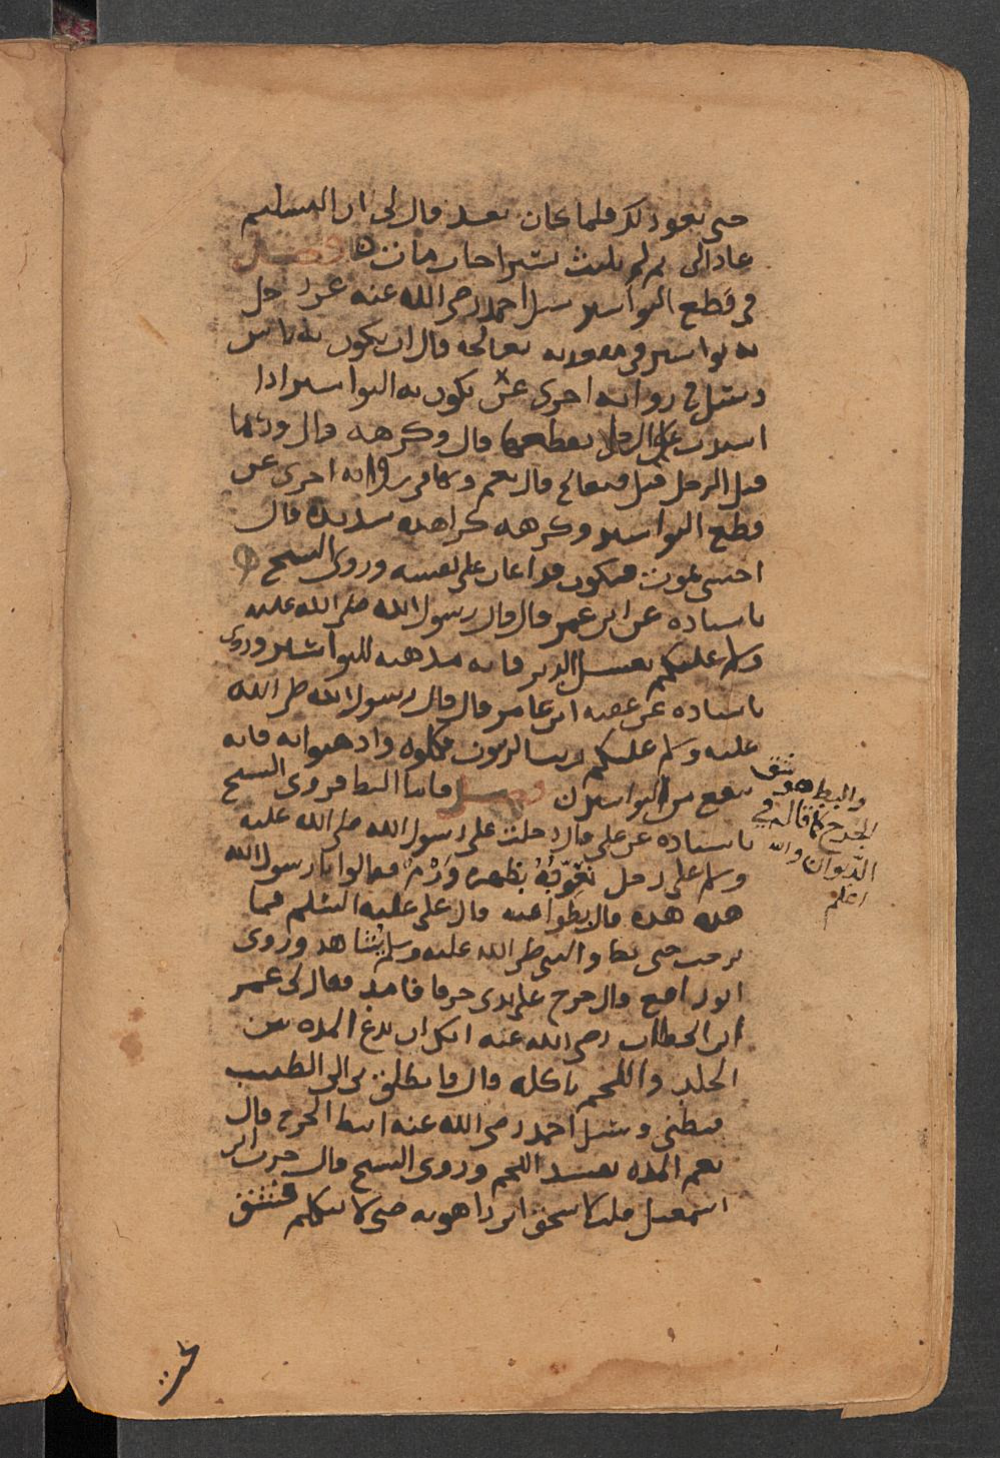 حتى يعود لك فلما كان بعد قال لى ان التسليم
عاد الى ثم لم يلبث يسيرا حتى مات فصل
فى قطع البواسير سئل احمد رضى الله عنه عن رجل
به بواسير فى مقعدته يعالجه قال ان يكون به باس
وسئل فى رواية اخرى عمن يكون به البواسير اذا
اشتدت على الرجل يقطعها قال وكرهه قال وربما
قتل الرجل قيل فيعالج قال نعم وكا فى رواية اخرى عن
قطع البواسير وكرهه كراهة شديدة قال
اخشى يموت فيكون قد اعان على نفسه وروى الشيخ
باسناده عن ابن عمر قال قال رسول الله صلى الله عليه
وسلم عليكم بغسل الدبر فانه مذهبة للبواسير وروى
باسناده عن عقبة ابن عامر قال قال رسول الله صلى الله
عليه وسلم عليكم بزيت الزيتون فكلوه وادهنوا به فانه
ينفع من البواسير فصل فاما البط فروى الشيخ
باسناده عن على قال دخلت على رسول الله صلى الله عليه
وسلم على رجل نعوده بظهره ورم فقالوا يا رسول الله
هذه مدة قال بطوا عنه قال على عليه السلم فما
برحت حتى بط والنبى صلى الله عليه وسلم يشاهد وروى
ابو رافع قال خرج على يدى فقال لى عمر
ابن الخطاب رضى الله عنه اتكل ان تدع المدة بين
الجلد واللحم تاكله قال فانطلق بى الى الطبيب
فبطنى وسئل احمد رضى الله عنه ابط الجرح قال
نعم المدة تفسد اللحم وروى الشيخ قال حرب ابن
اسمعيل قلت لاسحق ابن راهويه صبى لا يتكلم فنشق
والبط هو شق
الجرح كما قاله فى
الديوان والله
اعلم